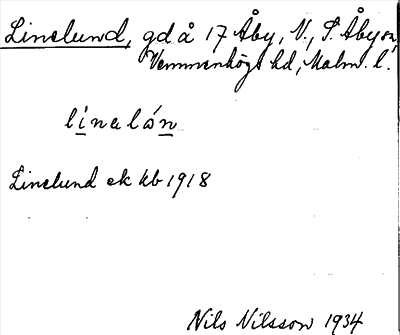 Linelund, gd å 17 Åby, V., S. Åby sn,
Vemmenhögs hd, Malm. l.
línalón
Linelund ek kb 1918
Nils Nilsson 1934